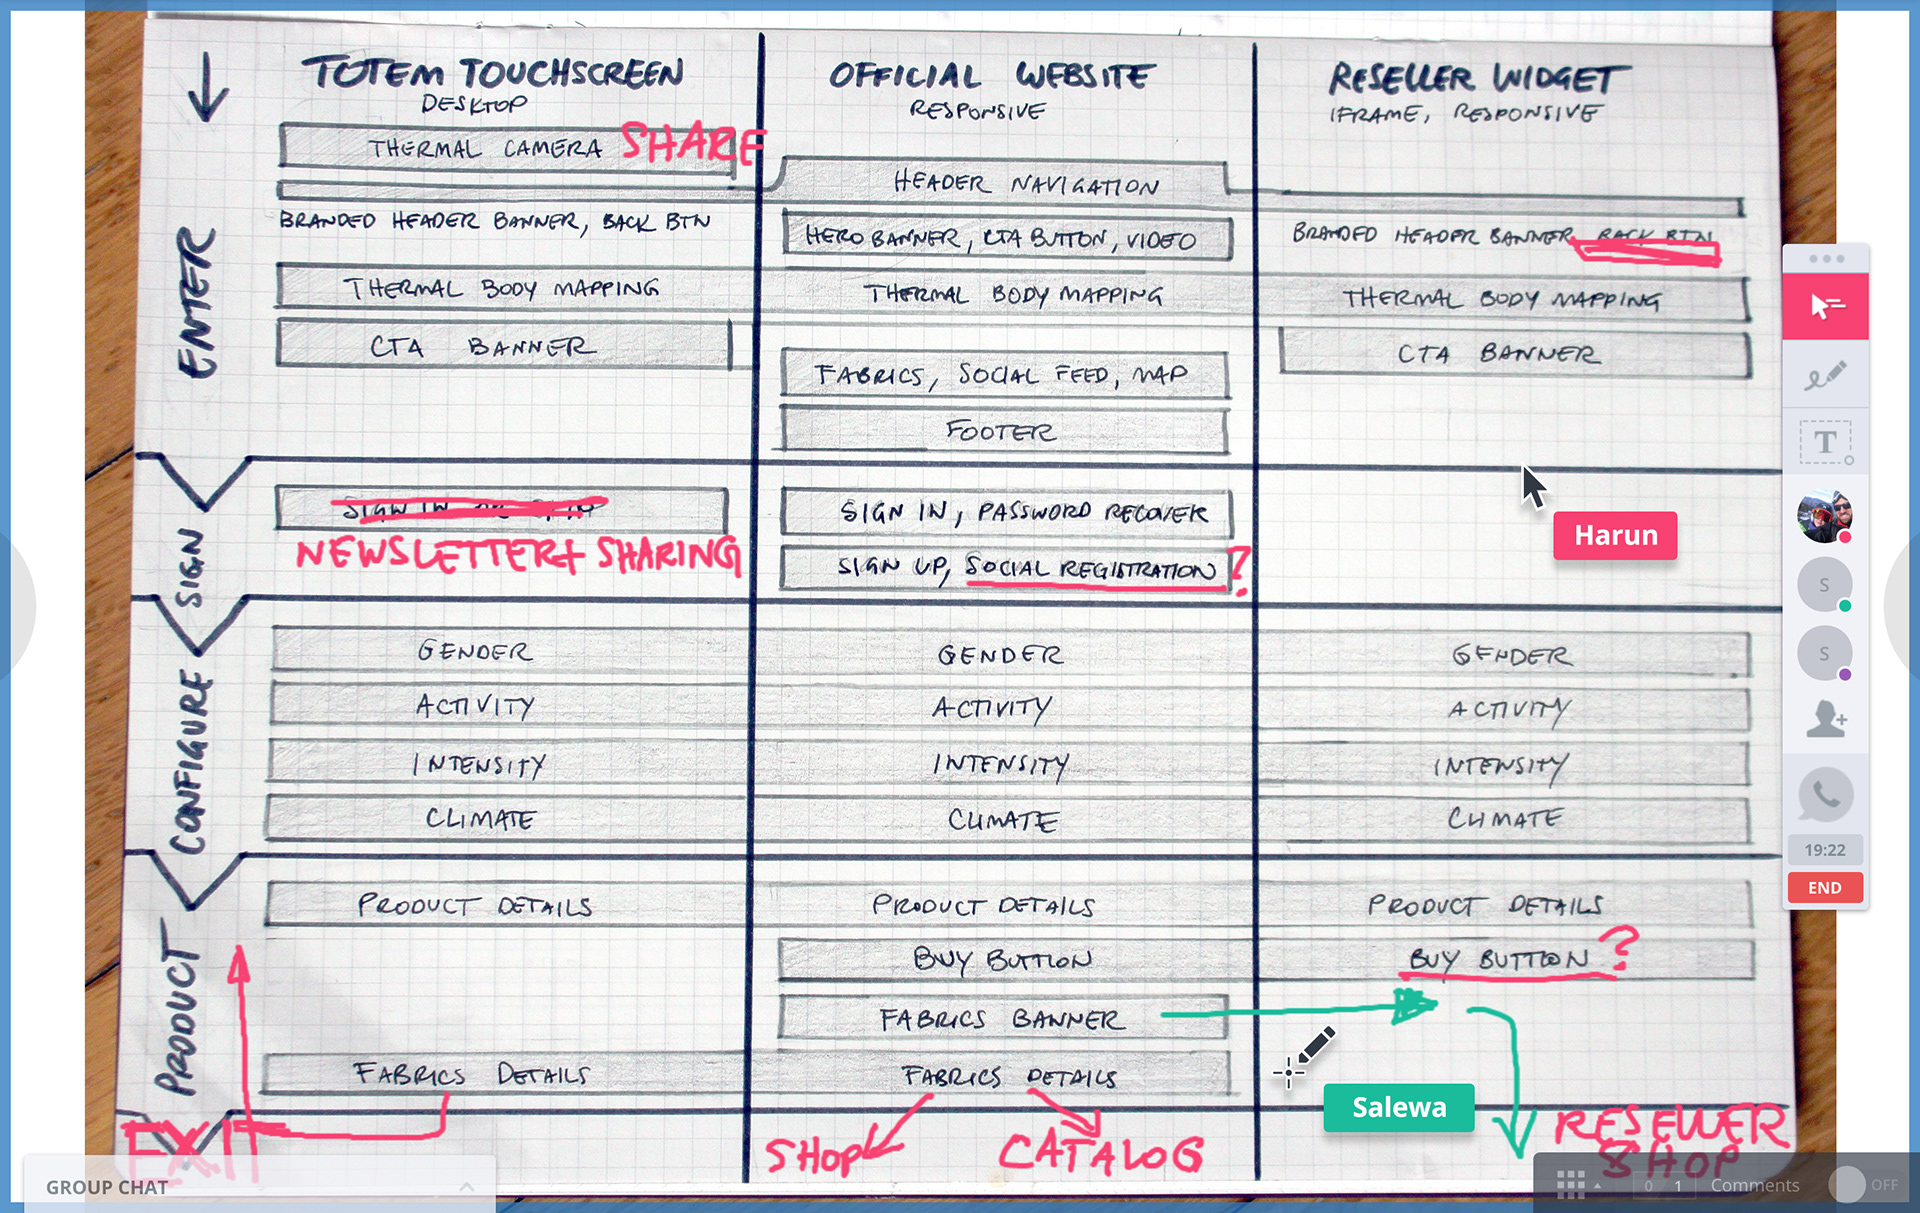 TOTEM TOUCHSCREEN
DESKTOP
OFFICIAL WEBSITE
RESPONSIVE
RESELLER WIDGET
IFRAME, RESPONSIVE
ENTER
THERMAL CAMERA
SHARE
HEADER NAVIGATION
BRANDED HEADER BANNER, BACK BTN
HERO BANNER, CTA BUTTON, VIDEO
BRANDED HEADER BANNER, BACK BTN
THERMAL BODY MAPPING
THERMAL BODY MAPPING
THERMAL BODY MAPPING
CTA BANNER
FABRICS, SOCIAL FEED, MAP
CTA BANNER
FOOTER
SIGN
SIGN IN
NEWSLETTER + SHARING
SIGN IN, PASSWORD RECOVER
SIGN UP, SOCIAL REGISTRATION ?
Harun
CONFIGURE
GENDER
GENDER
GENDER
ACTIVITY
ACTIVITY
ACTIVITY
INTENSITY
INTENSITY
INTENSITY
CLIMATE
CLIMATE
CLIMATE
PRODUCT
PRODUCT DETAILS
PRODUCT DETAILS
PRODUCT DETAILS
BUY BUTTON
BUY BUTTON ?
FABRICS BANNER
FABRICS DETAILS
FABRICS DETAILS
Salewa
EXIT
SHOP
CATALOG
RESELLER
SHOP
T
S
S
19:22
END
GROUP CHAT
0 1 Comments
OFF